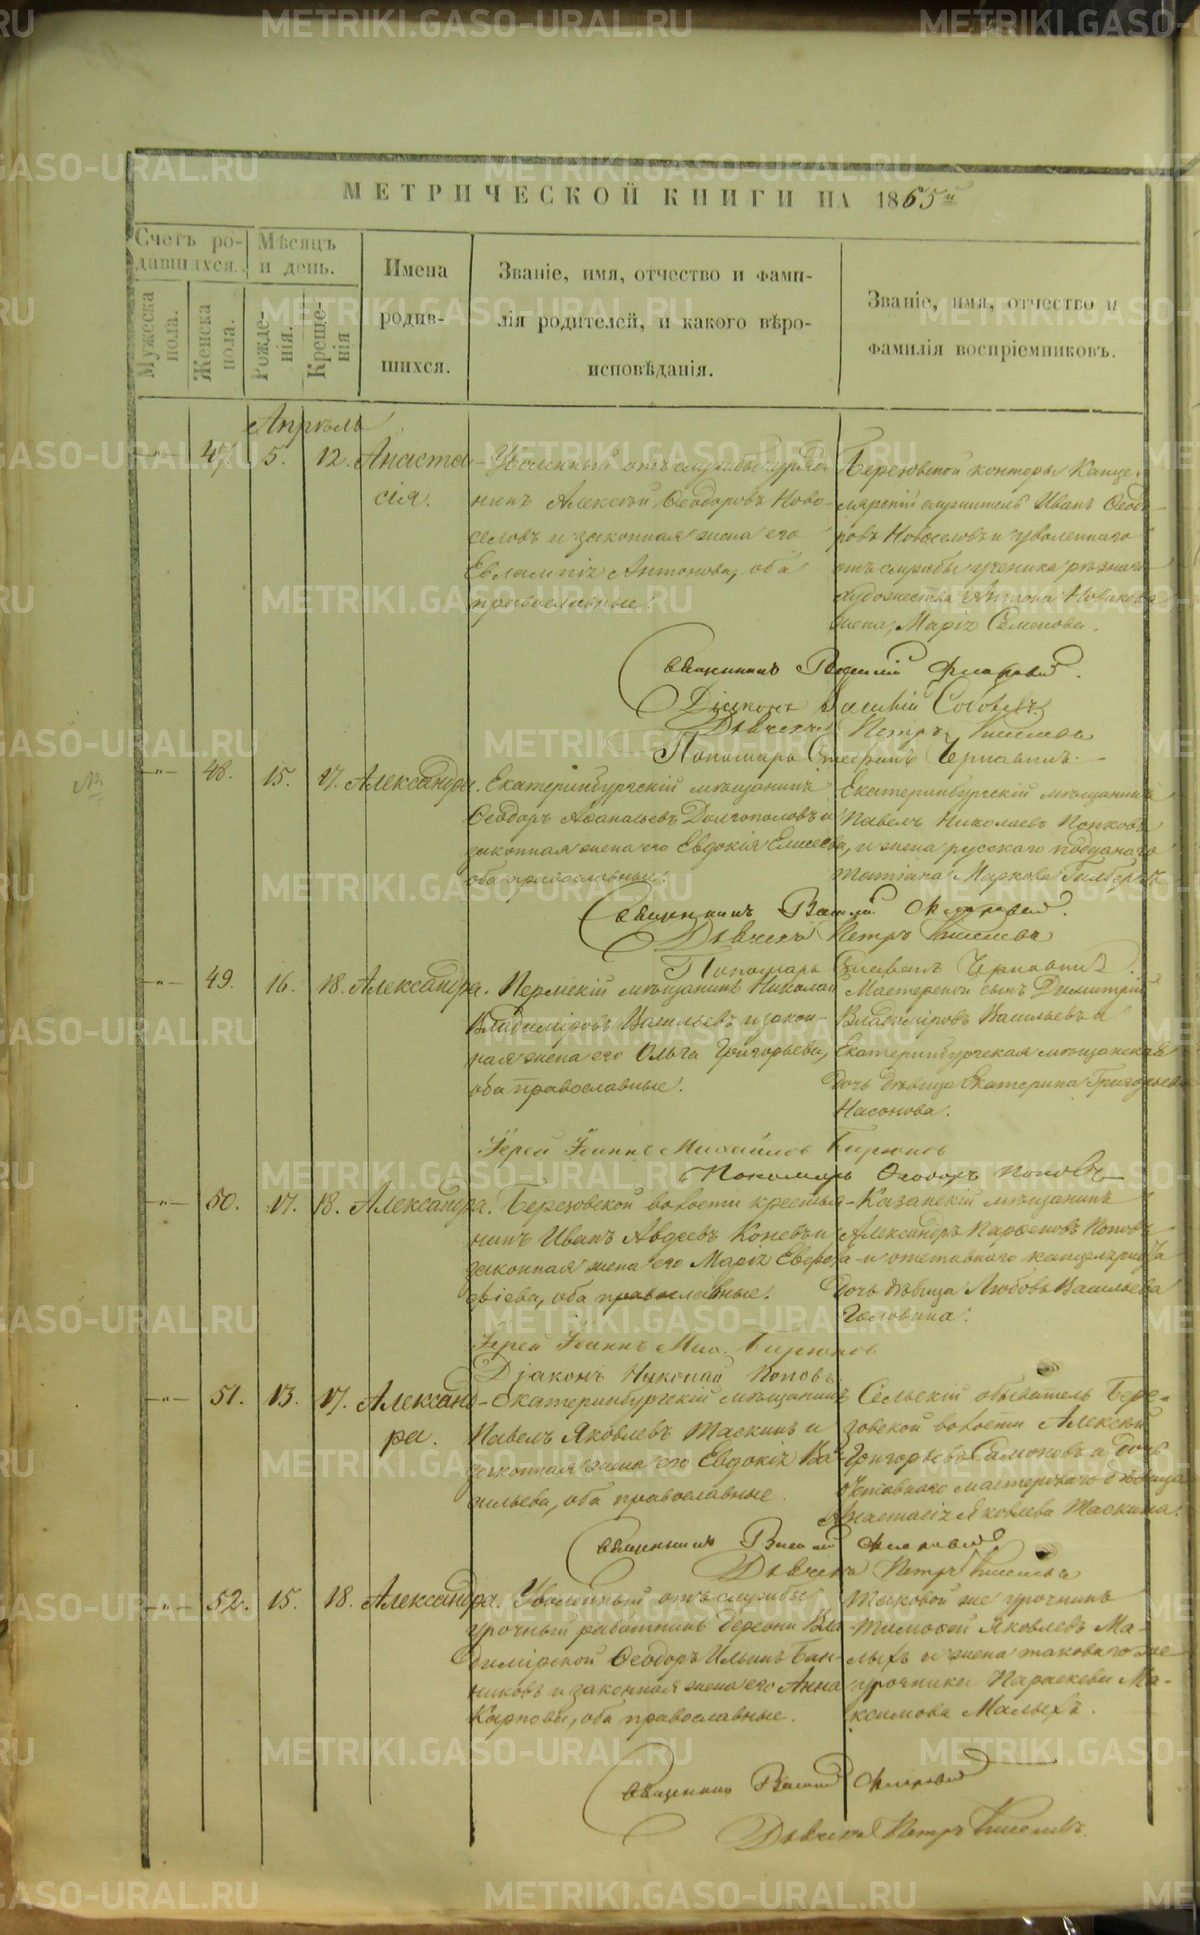 МЕТРИЧЕСКОЙ КНИГИ НА 1865й
Счетъ ро-
дившихся.
Мѣсяцъ
и день.
Мужеска
пола.
Женска
пола.
Рожде-
нія.
Креще-
нія
Имена
родив-
шихся.
Званіе, имя, отчество и фами-
лія родителей, и какого вѣро-
исповѣданія.
Званіе, имя, отчество и
фамилія воспріемниковъ.
Апрѣль
-"- 47. 5. 12. Анаста-
сія.
Уволенный отъ службы
нинъ Алексѣй Ѳеодоровъ Ново-
селовъ и законная жена его
Евлампія Антонова, оба
православные.
Березовской конторы Канце-
лярскій служитель Иванъ Ѳеодо-
ровъ Новоселовъ и уволеннаго
отъ службы ученика рѣзнаго
художества Антона
жена, Марія Семенова.
Священникъ Василій Флоровскій.
Діаконъ Василій
Дьячекъ Петръ Киселевъ
Пономарь Стефанъ Чернавинъ.
-"- 48. 15. 17. Александра.
Екатеринбургскій мѣщанинъ
Ѳеодоръ Аѳанасьевъ Долгополовъ и
законная жена его Евдокія Елисеева,
оба православные.
Екатеринбургскій мѣщанинъ
Павелъ Николаевъ Попковъ
и жена русскаго подданаго
Татіана Маркова
Священникъ Василій Флоровскій.
Дьячекъ Петръ Киселевъ
Пономарь Стефанъ Чернавинъ.
-"- 49. 16. 18. Александра.
Пермскій мѣщанинъ Николай
Владиміровъ Васильевъ и закон-
ная жена его Ольга Григорьева,
оба православные.
Мастерской сынъ Димитрій
Владиміровъ Васильевъ и
Екатеринбургская мѣщанская
дочь дѣвица Екатерина Григорьева
Насонова.
Іерей Іоаннъ Михайловъ Бирюковъ
Пономарь Ѳеодоръ Поповъ
-"- 50. 17. 18. Александра.
Березовской волости крестья-
нинъ Иванъ Авдеевъ Коневъ и
законная жена его Марія
оба православные.
Казанскій мѣщанинъ
Александръ Парѳеновъ Поповъ
и отставнаго канцеляриста
дочь дѣвица Любовь Васильева
Головина.
Іерей Іоаннъ Мих. Бирюковъ
Діаконъ Николай Поповъ
-"- 51. 13. 17. Александ-
ра.
Екатеринбургскій мѣщанинъ
Павелъ Яковлевъ Таскинъ и
законная жена его Евдокія Ва-
сильева, оба православные.
Сельскій обыватель Бере-
зовской волости Алексѣй
Григорьевъ Самоновъ и дочь
отставнаго мастероваго дѣвица
Анастасія Яковлева Таскина.
Священникъ Василій Флоровскій
Дьячекъ Петръ Киселевъ
-"- 52. 15. 18. Александра.
Уволенный отъ службы
урочный работникъ деревни Вла-
димірской Ѳеодоръ Ильинъ Бан-
никовъ и законная жена его Анна
Карпова, оба православные.
Таковой же урочникъ
Тимоѳей Яковлевъ Ма-
лыхъ и жена таковаго же
урочника Параскева Ма-
ксимова Малыхъ.
Священникъ Василій Флоровскій
Дьячекъ Петръ Киселевъ
METRIKI.GASO-URAL.RU